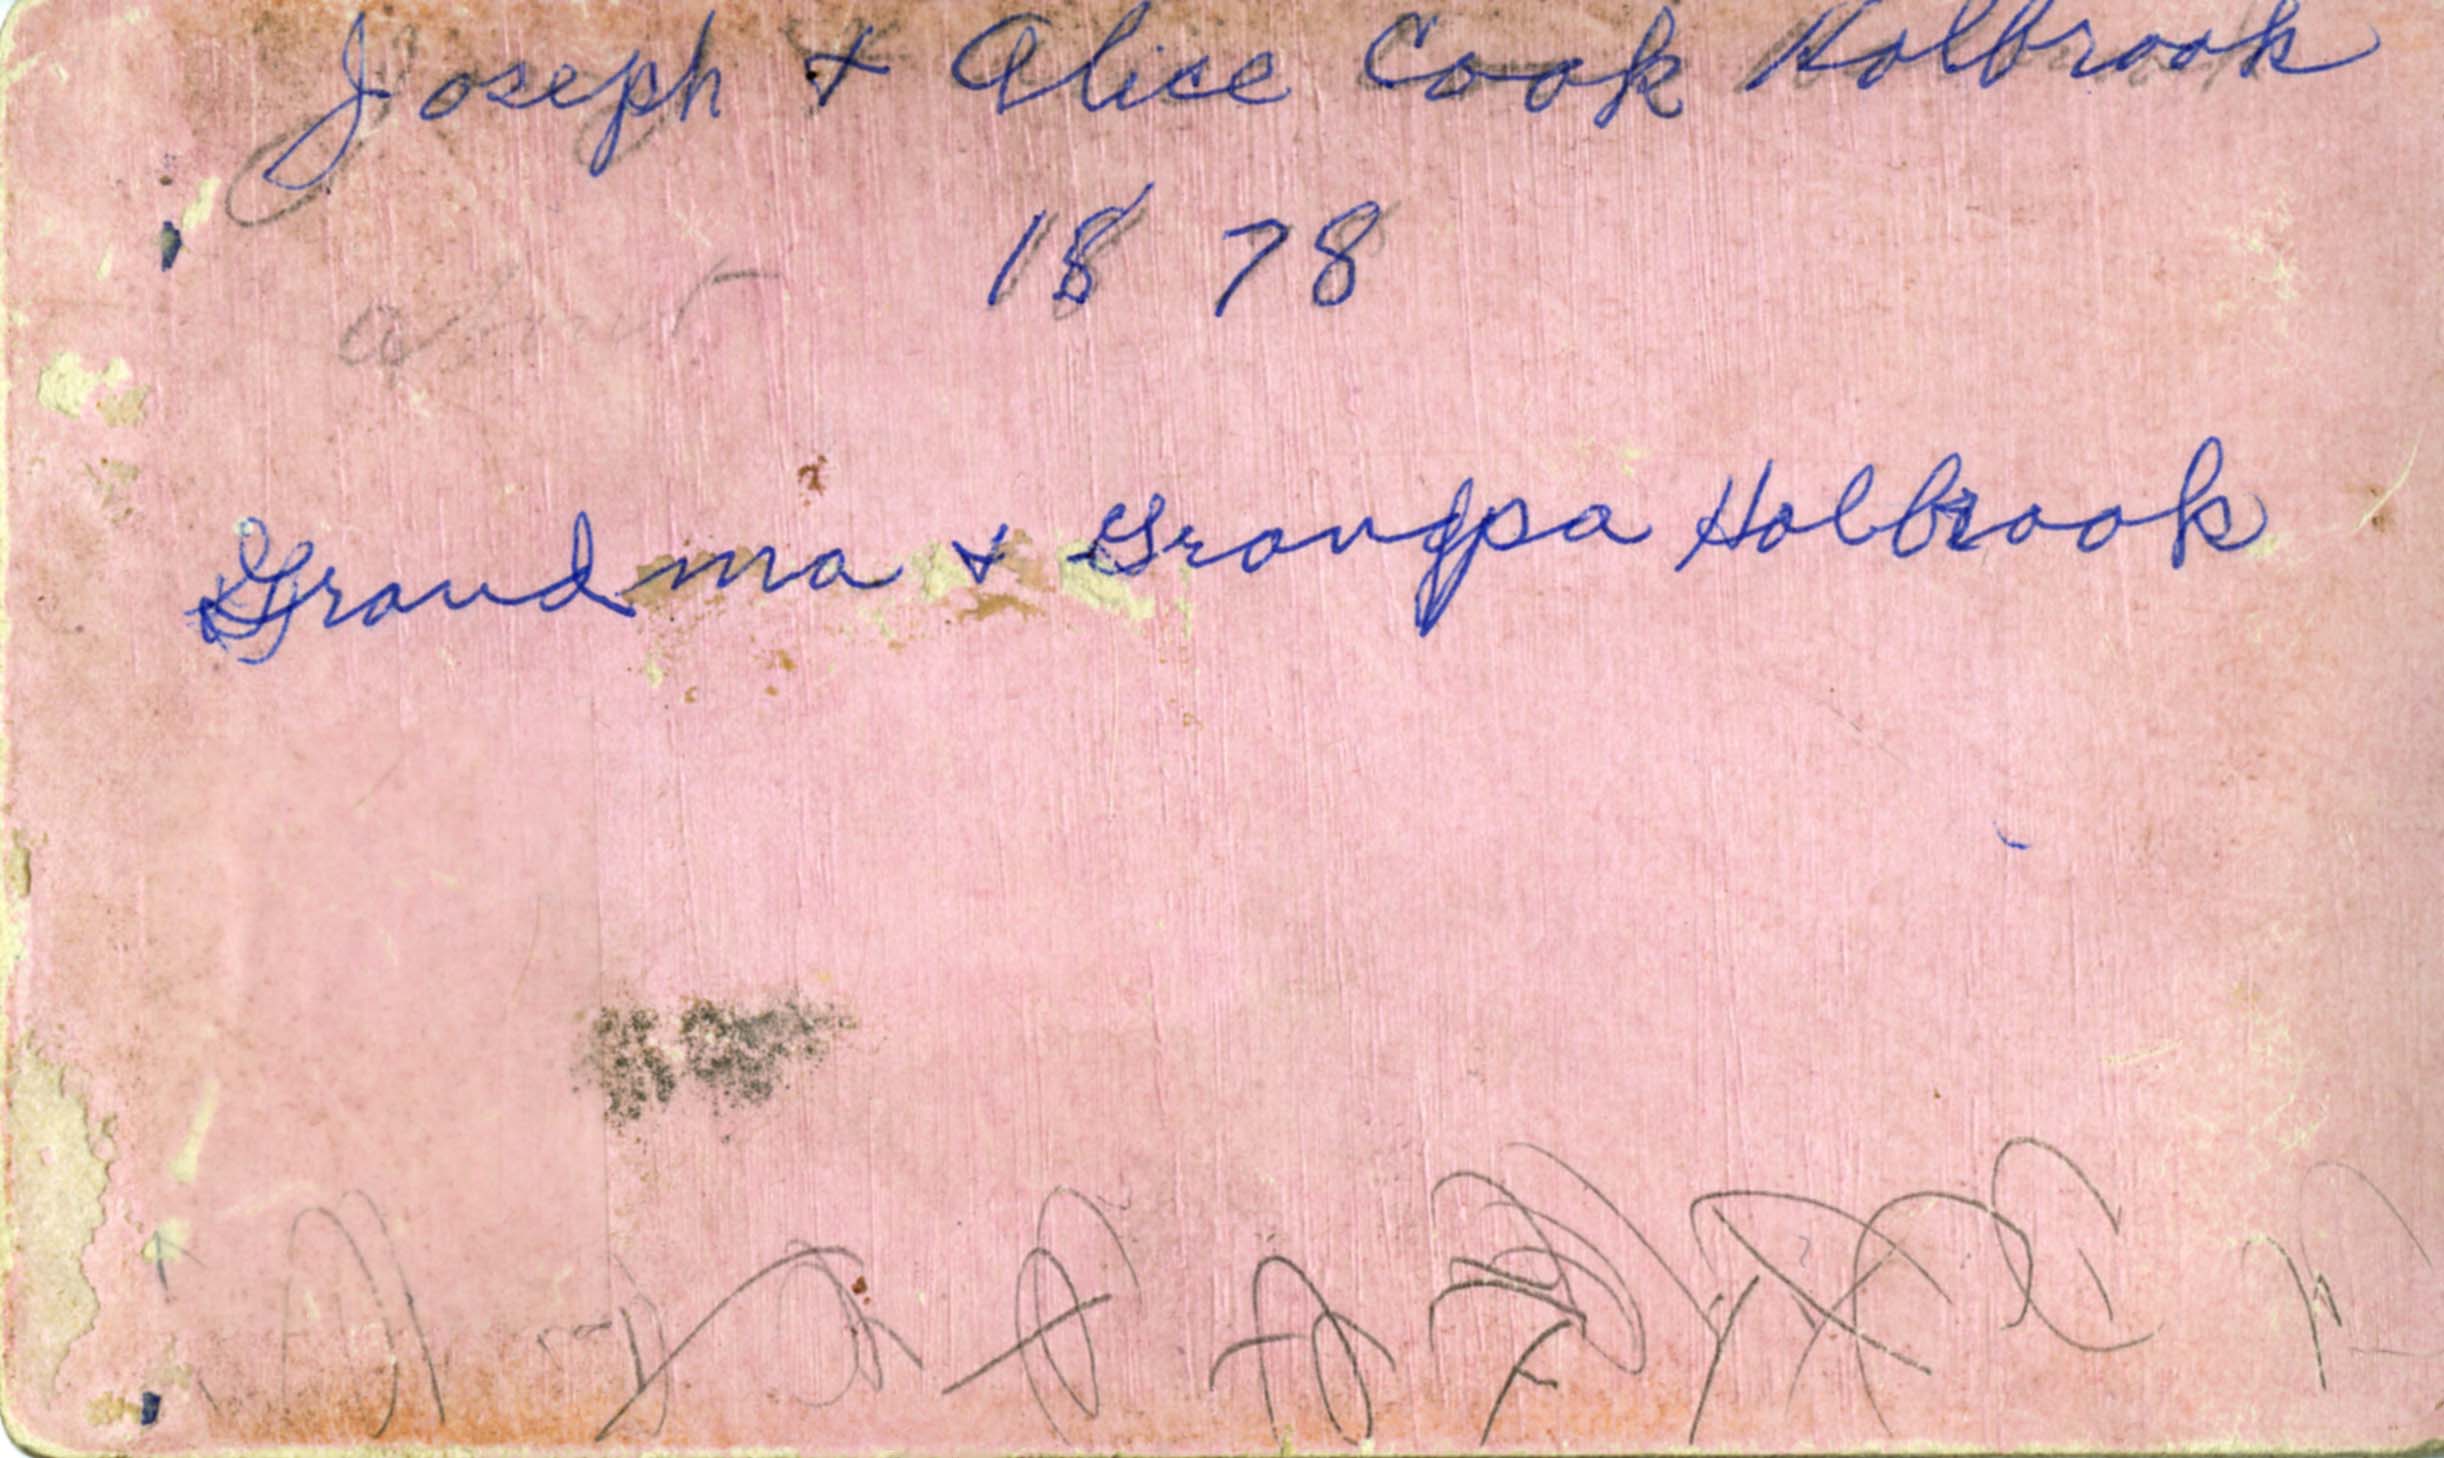 Joseph & Alice Cook Holbrook
about 1878
Grandma & Grandpa Holbrook